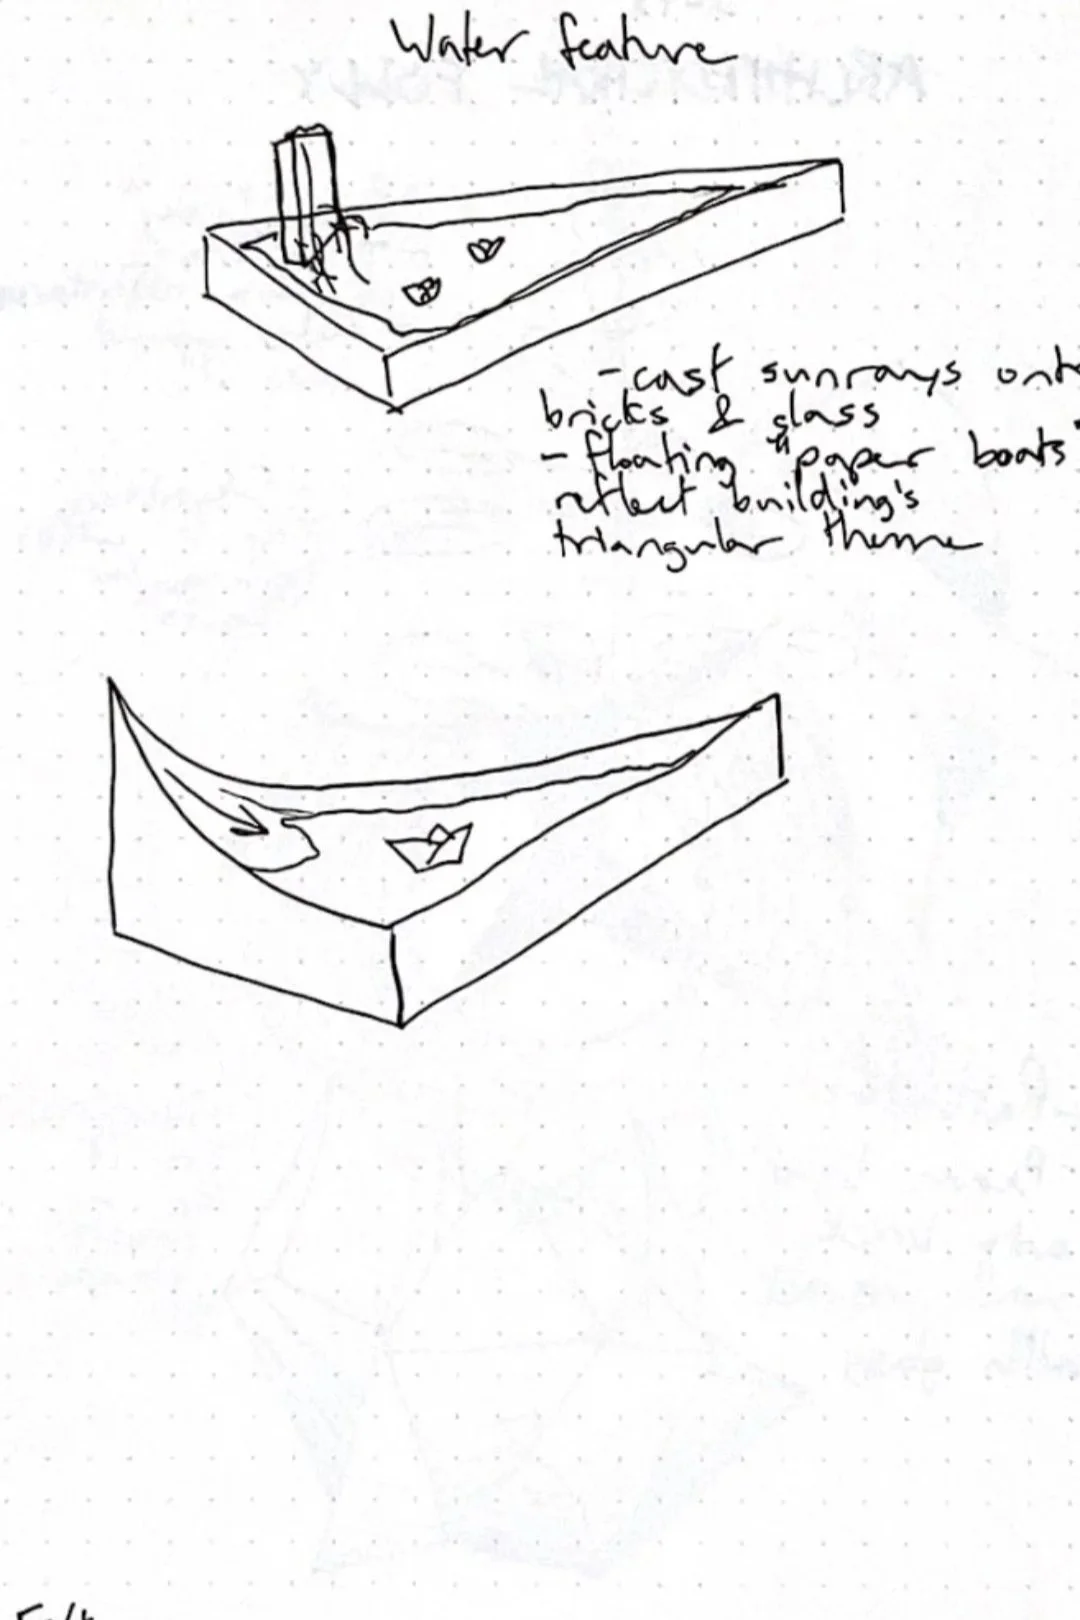 Water feature
- cast sunrays onto
bricks & glass
- floating "paper boats"
reflect building's
triangular theme